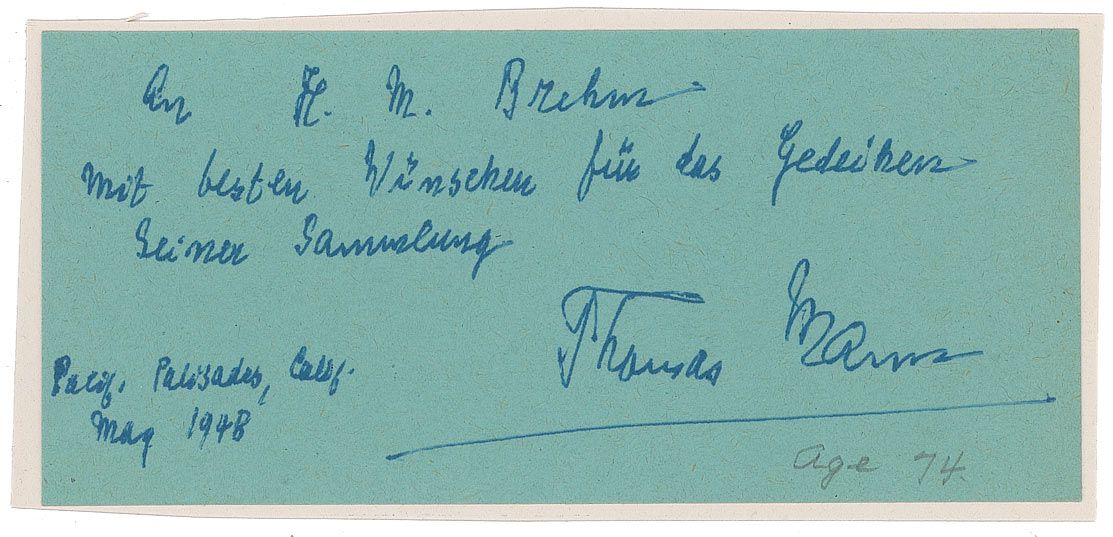 An H. M. Brehm
mit besten Wünschen für das Gedeihen
seiner Sammlung
Thomas Mann
Pacif. Palisades, Calif.
May 1948
age 74.